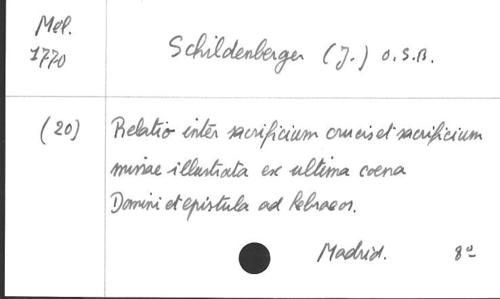 Mél.
1770
Schildenberger (J.) O.S.B.
(20)
Relatio inter sacrificium crucis et sacrificium
missae illustrata ex ultima coena
Domini et epistula ad Hebraeos.
Madrid. 8º